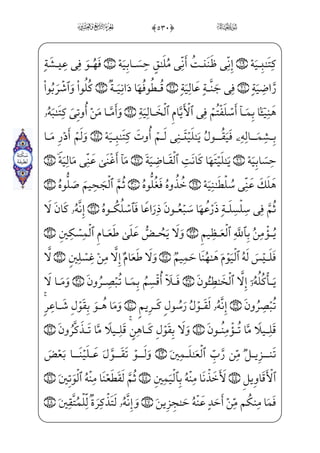 ﴿٥٣٠﴾
كِتَٰبِيَهۡ ١٩ إِنِّي ظَنَنتُ أَنِّي مُلَٰقٍ حِسَابِيَهۡ ٢٠ فَهُوَ فِي عِيشَةٖ
رَّاضِيَةٖ ٢١ فِي جَنَّةٍ عَالِيَةٖ ٢٢ قُطُوفُهَا دَانِيَةٞ ٢٣ كُلُواْ وَٱشۡرَبُواْ
هَنِيٓـَٔۢا بِمَآ أَسۡلَفۡتُمۡ فِي ٱلۡأَيَّامِ ٱلۡخَالِيَةِ ٢٤ وَأَمَّا مَنۡ أُوتِيَ كِتَٰبَهُۥ
بِشِمَالِهِۦ فَيَقُولُ يَٰلَيۡتَنِي لَمۡ أُوتَ كِتَٰبِيَهۡ ٢٥ وَلَمۡ أَدۡرِ مَا
حِسَابِيَهۡ ٢٦ يَٰلَيۡتَهَا كَانَتِ ٱلۡقَاضِيَةَ ٢٧ مَآ أَغۡنَىٰ عَنِّي مَالِيَهۡۜ ٢٨
هَلَكَ عَنِّي سُلۡطَٰنِيَهۡ ٢٩ خُذُوهُ فَغُلُّوهُ ٣٠ ثُمَّ ٱلۡجَحِيمَ صَلُّوهُ ٣١
ثُمَّ فِي سِلۡسِلَةٖ ذَرۡعُهَا سَبۡعُونَ ذِرَاعٗا فَٱسۡلُكُوهُ ٣٢ إِنَّهُۥ كَانَ لَا
يُؤۡمِنُ بِٱللَّهِ ٱلۡعَظِيمِ ٣٣ وَلَا يَحُضُّ عَلَىٰ طَعَامِ ٱلۡمِسۡكِينِ ٣٤
فَلَيۡسَ لَهُ ٱلۡيَوۡمَ هَٰهُنَا حَمِيمٞ ٣٥ وَلَا طَعَامٌ إِلَّا مِنۡ غِسۡلِينٖ ٣٦ لَّا
يَأۡكُلُهُۥٓ إِلَّا ٱلۡخَٰطِـُٔونَ ٣٧ فَلَآ أُقۡسِمُ بِمَا تُبۡصِرُونَ ٣٨ وَمَا لَا
تُبۡصِرُونَ ٣٩ إِنَّهُۥ لَقَوۡلُ رَسُولٖ كَرِيمٖ ٤٠ وَمَا هُوَ بِقَوۡلِ شَاعِرٖۚ
قَلِيلٗا مَّا تُؤۡمِنُونَ ٤١ وَلَا بِقَوۡلِ كَاهِنٖۚ قَلِيلٗا مَّا تَذَكَّرُونَ ٤٢
تَنزِيلٞ مِّن رَّبِّ ٱلۡعَٰلَمِينَ ٤٣ وَلَوۡ تَقَوَّلَ عَلَيۡنَا بَعۡضَ
ٱلۡأَقَاوِيلِ ٤٤ لَأَخَذۡنَا مِنۡهُ بِٱلۡيَمِينِ ٤٥ ثُمَّ لَقَطَعۡنَا مِنۡهُ ٱلۡوَتِينَ ٤٦
فَمَا مِنكُم مِّنۡ أَحَدٍ عَنۡهُ حَٰجِزِينَ ٤٧ وَإِنَّهُۥ لَتَذۡكِرَةٞ لِّلۡمُتَّقِينَ ٤٨